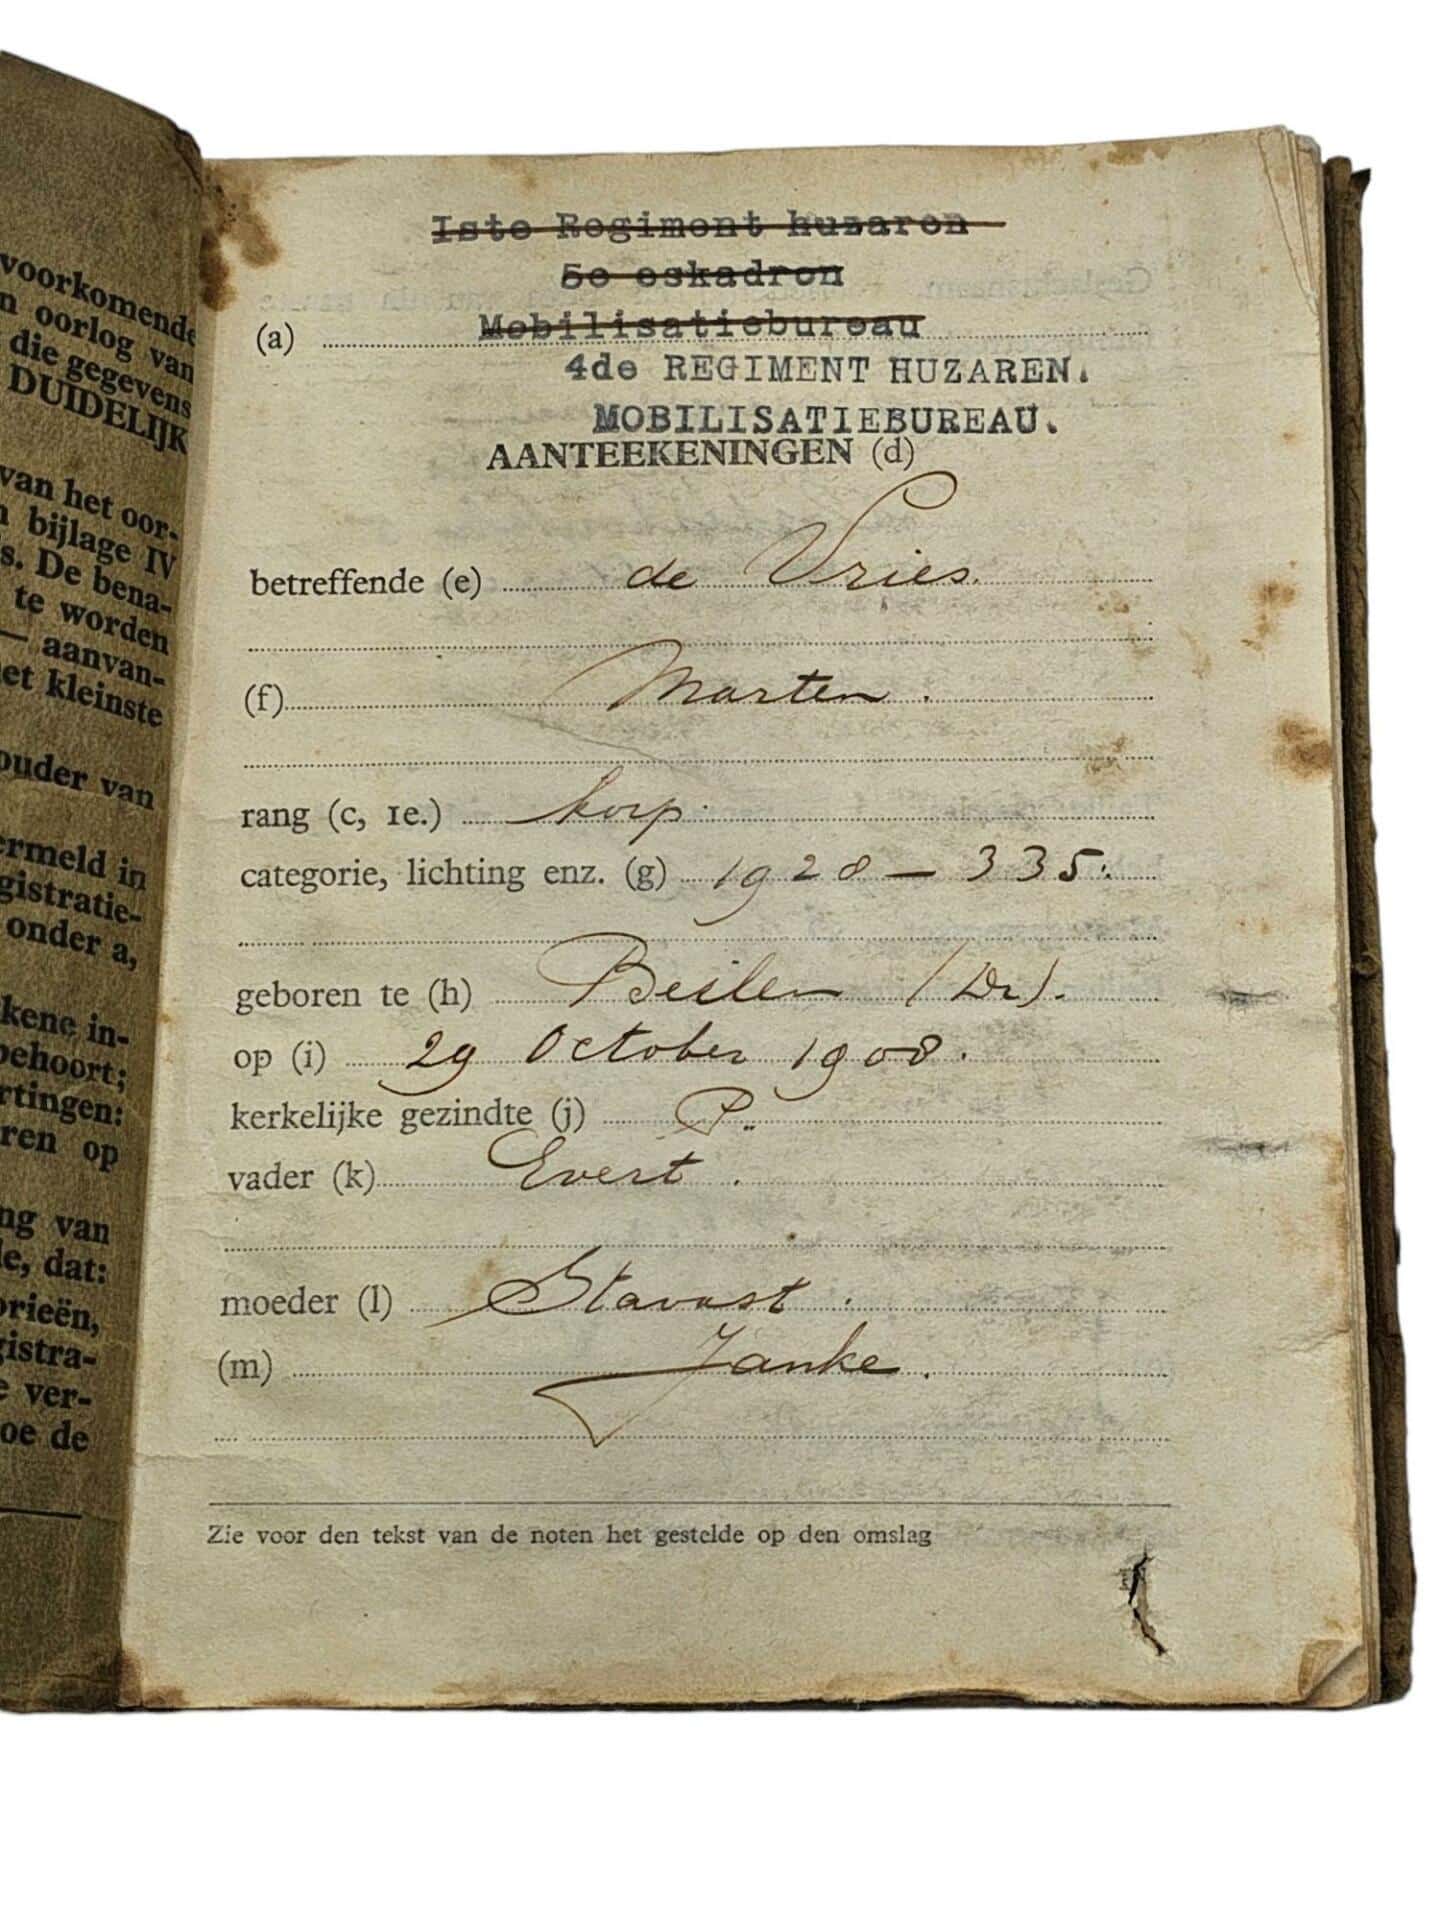 voorkomende
n oorlog van
die gegevens
DUIDELIJK
van het oor-
n bijlage IV
s. De bena-
te worden
— aanvan-
et kleinste
ouder van
ermeld in
gistratie-
onder a,
kene in-
behoort;
rtingen:
ren op
ng van
le, dat:
orieën,
gistra-
e ver-
oe de
Iste Regiment huzaren
5e eskadron
(a) Mobilisatiebureau
4de REGIMENT HUZAREN.
MOBILISATIEBUREAU.
AANTEEKENINGEN (d)
betreffende (e) de Vries.
(f) Marten.
rang (c, 1e.) korp.
categorie, lichting enz. (g) 1928 — 335.
geboren te (h) Beilen (Dr).
op (i) 29 October 1908.
kerkelijke gezindte (j) P.
vader (k) Evert.
moeder (l) Stavast.
(m) Janke.
Zie voor den tekst van de noten het gestelde op den omslag